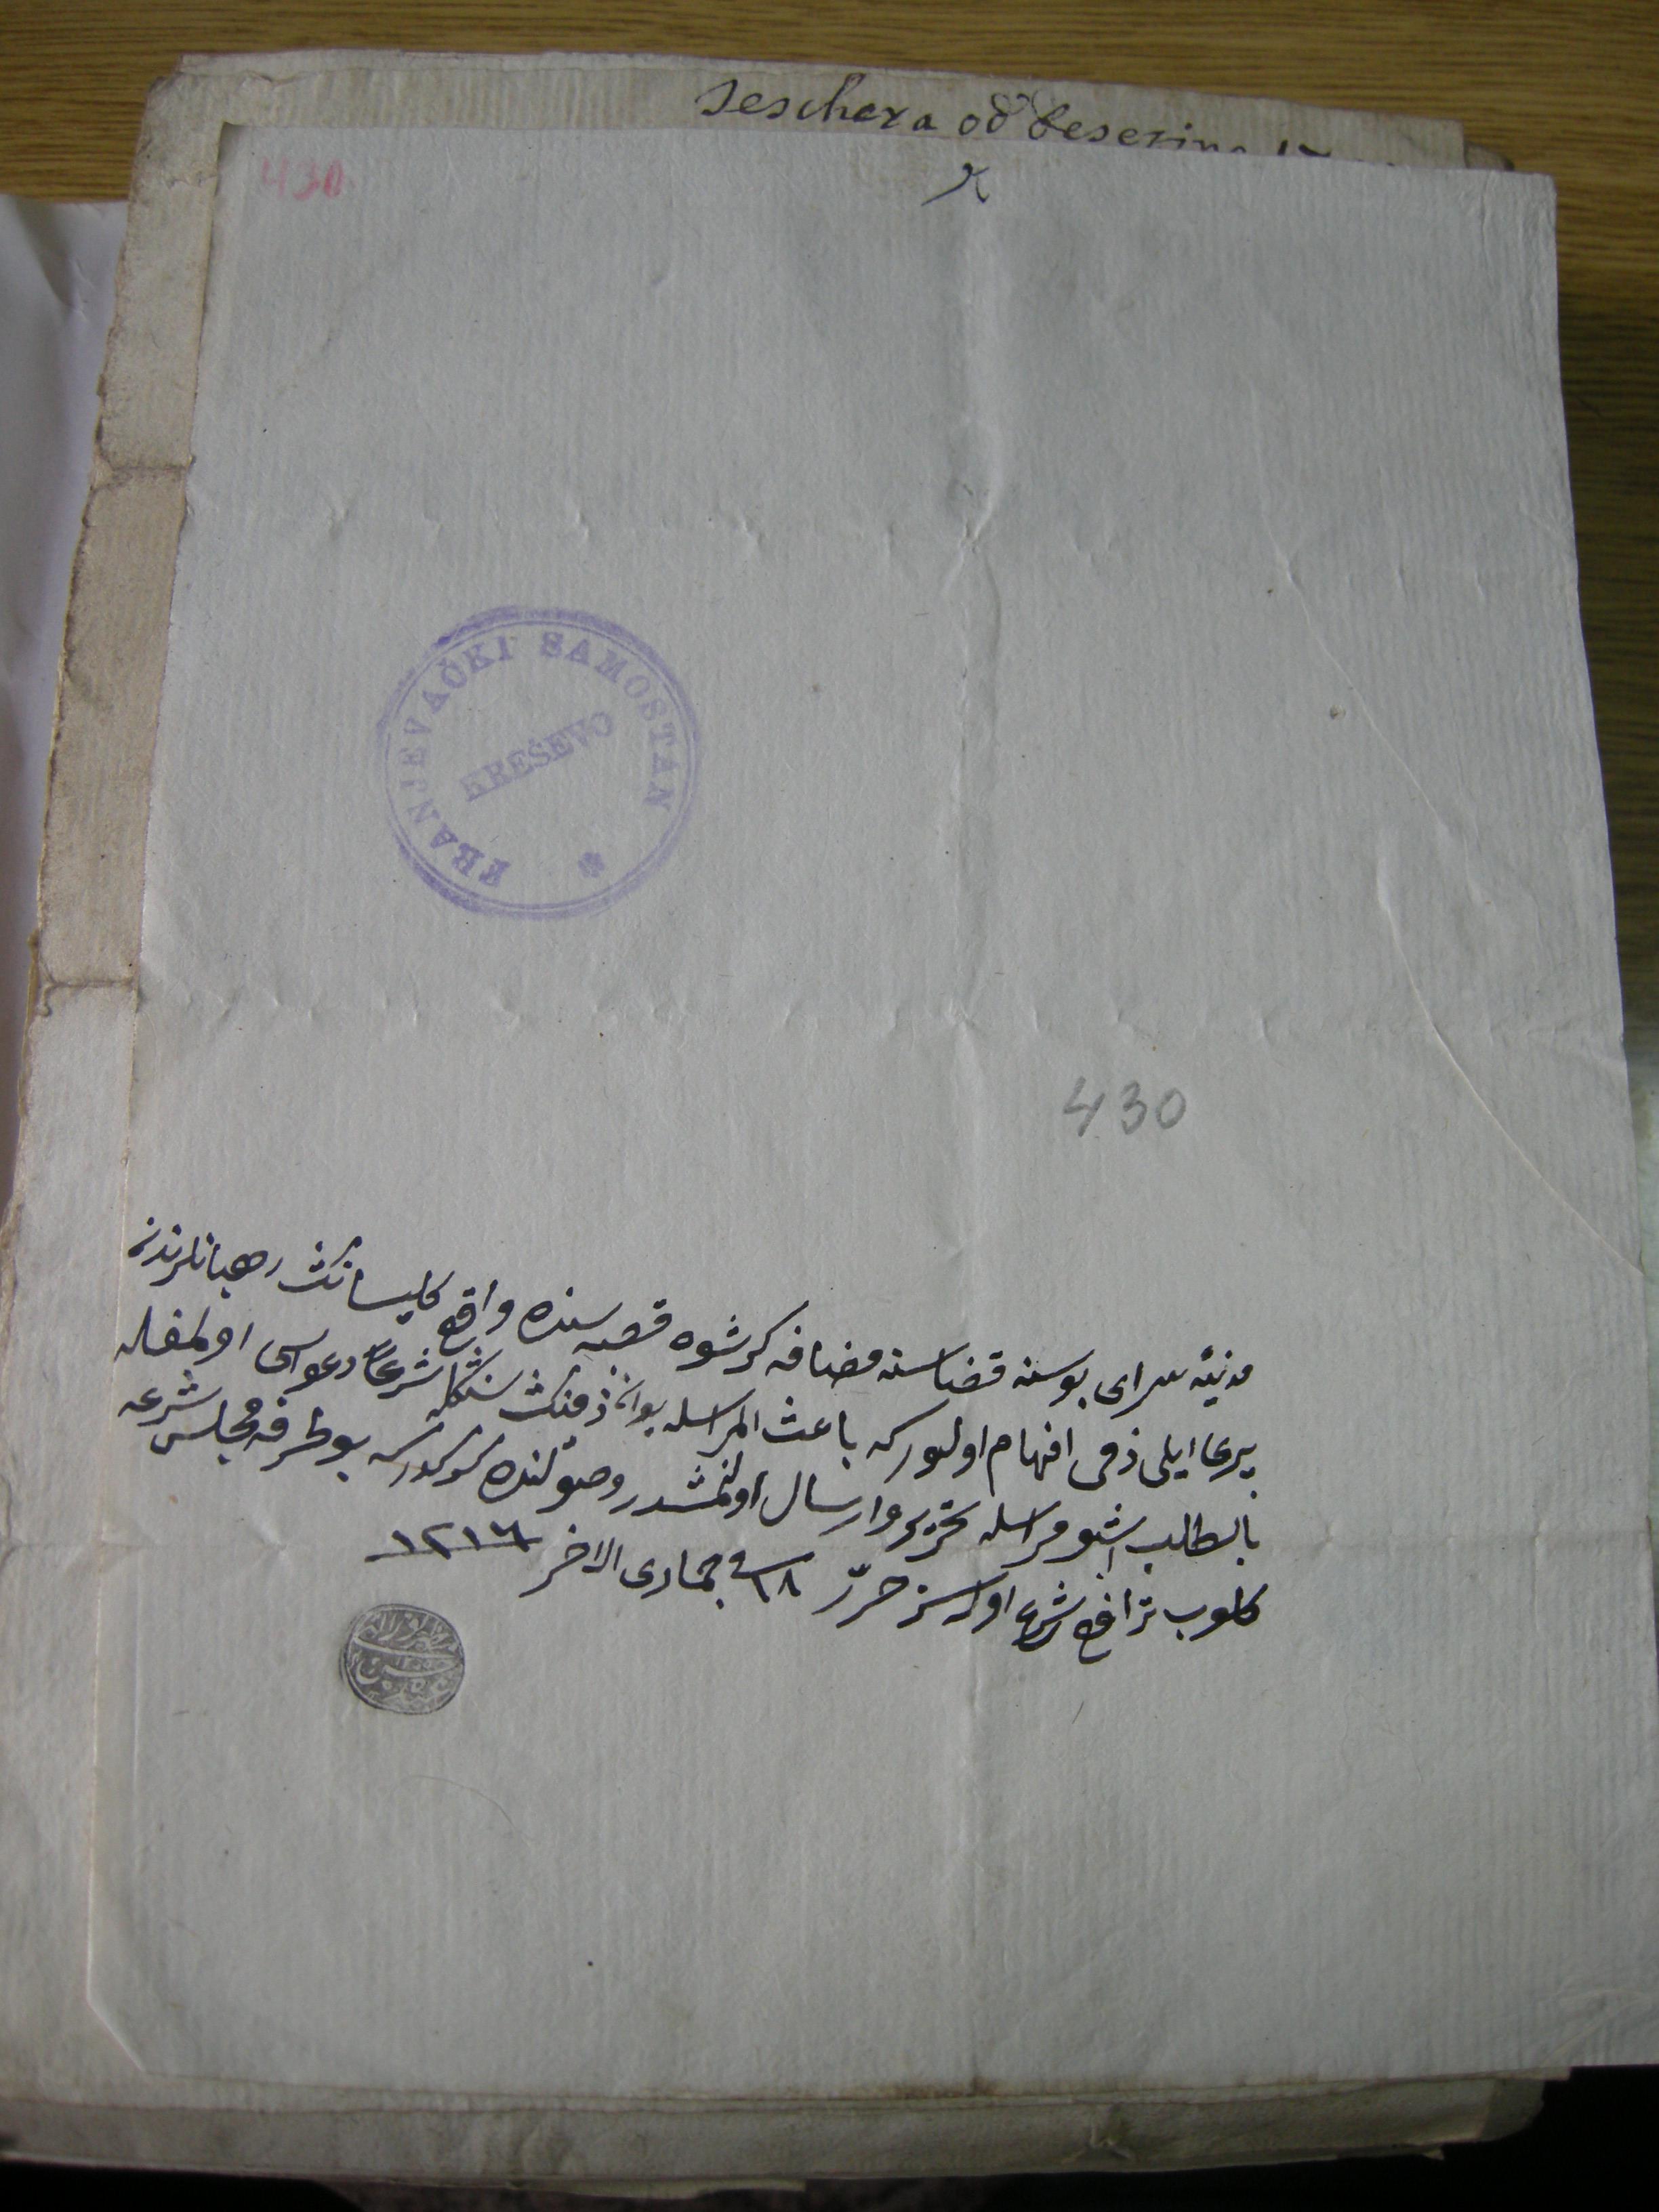 Seschera od
430
FRANJEVAČKI SAMOSTAN
KREŠEVO
430
مدینهٔ سرای بوسنه قضاسنه مضافه کرشوه قصبه سنده واقع کلیسانك رهبانلرندن
ایلی ذمی افهام اولنور که باعث المراسله یوان ذمینك سنكله شرعاً دعواسی اولمغله
بالطلب اشبو مراسله تحریر و ارسال اولنمشدر وصولنده کرکدر که بو طرفه مجلس شرعه
کلوب ترافع شرع اوله سز حرر فی ١٨ جمادی الاخر ١٢١٦